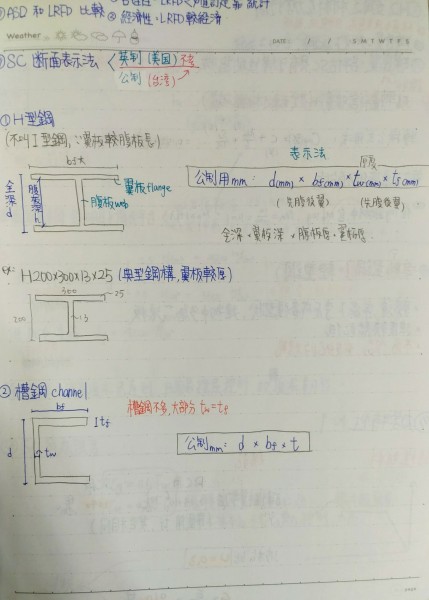 ①ASD 和 LRFD 比較
② 經濟性、LRFD 較經濟
Weather
DATE / / S M T W T F S
SC 断面表示法 < 英制 (美國) 不考
公制 (台湾)
①H型鋼
(不叫I型鋼, ∵翼板較腹板長)
bf
翼板flange
腹板web
全深d
腹板深h
表示法
厚度
公制用mm: d(mm) × bf(mm) × tw(mm) × tf(mm)
(先腹後翼) (先腹後翼)
全深×翼板深×腹板厚×翼板厚
Ex: H200×300×13×25 (典型鋼構,翼板較厚)
300
25
200
13
② 槽鋼 channel
bf
tf
d
tw
槽鋼不多,大部分 tw=tf
公制mm: d × bf × t